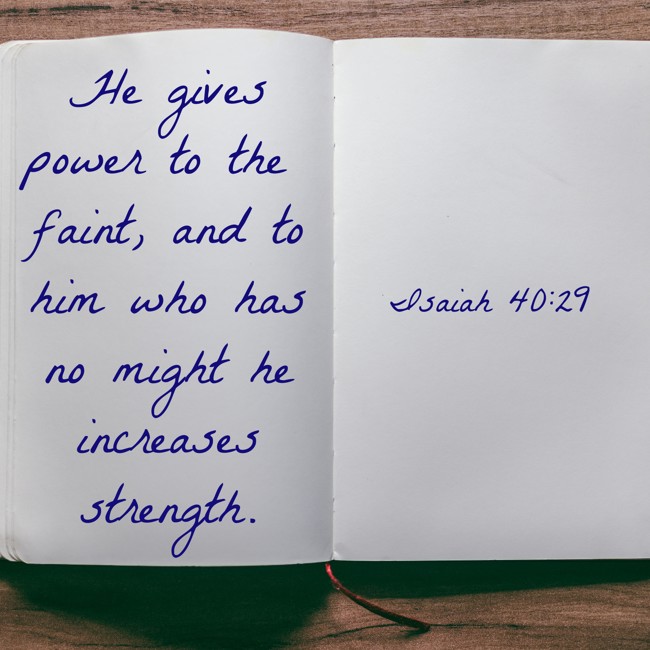 He gives
power to the
faint, and to
him who has
no might he
increases
strength.
Isaiah 40:29